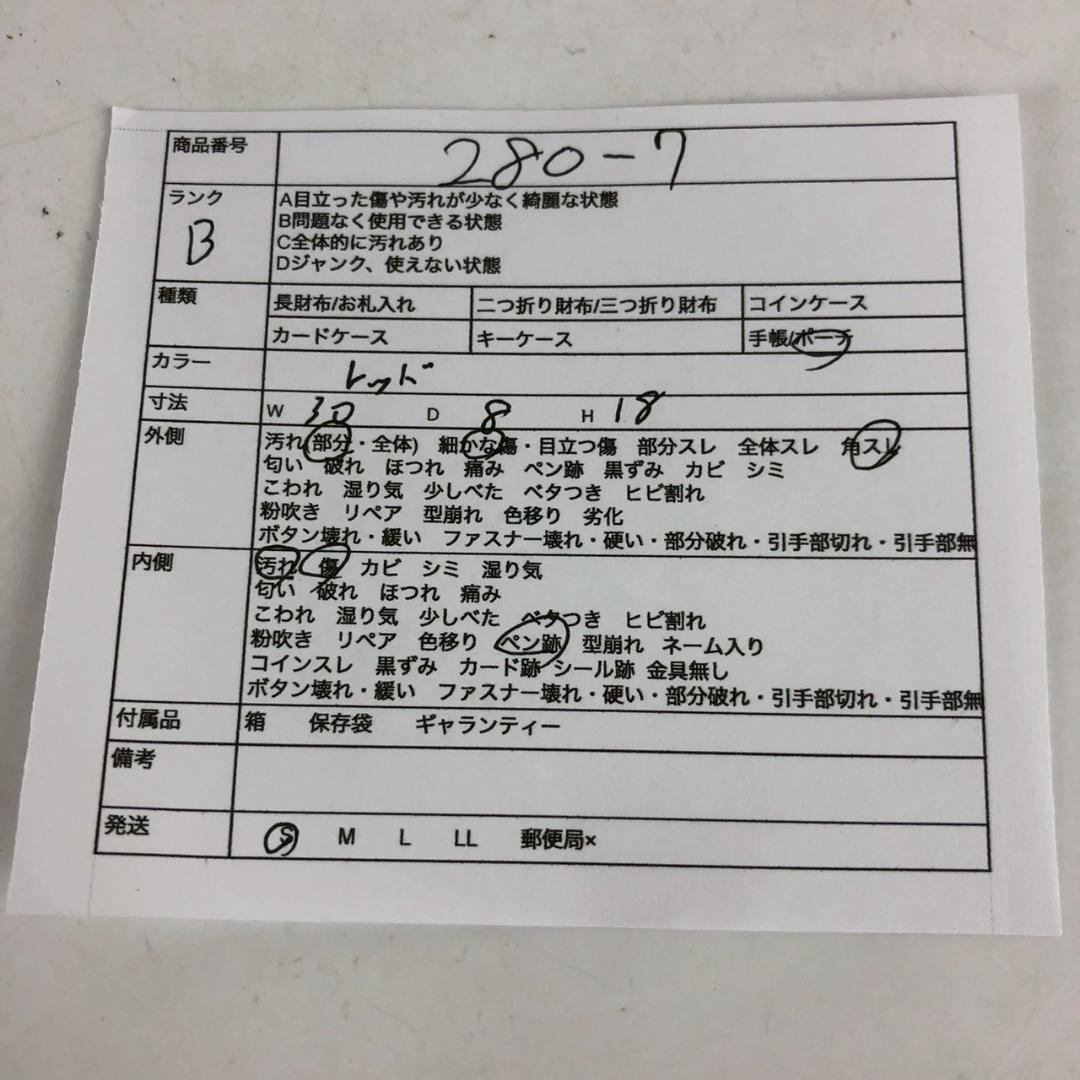 商品番号 280-7
ランク B
A目立った傷や汚れが少なく綺麗な状態
B問題なく使用できる状態
C全体的に汚れあり
Dジャンク、使えない状態
種類 長財布/お札入れ 二つ折り財布/三つ折り財布 コインケース
カードケース キーケース 手帳/ポーチ
カラー レッド
寸法 W 30 D 8 H 18
外側 汚れ(部分・全体) 細かな傷・目立つ傷 部分スレ 全体スレ 角スレ
匂い 破れ ほつれ 痛み ペン跡 黒ずみ カビ シミ
こわれ 湿り気 少しべた ベタつき ヒビ割れ
粉吹き リペア 型崩れ 色移り 劣化
ボタン壊れ・緩い ファスナー壊れ・硬い・部分破れ・引手部切れ・引手部無
内側 汚れ 傷 カビ シミ 湿り気
匂い 破れ ほつれ 痛み
こわれ 湿り気 少しべた ベタつき ヒビ割れ
粉吹き リペア 色移り ペン跡 型崩れ ネーム入り
コインスレ 黒ずみ カード跡 シール跡 金具無し
ボタン壊れ・緩い ファスナー壊れ・硬い・部分破れ・引手部切れ・引手部無
付属品 箱 保存袋 ギャランティー
備考
発送 S M L LL 郵便局×